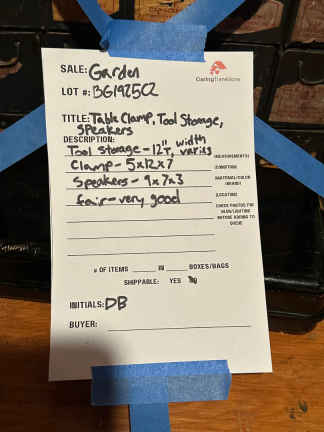 SALE: Garden
CaringTransitions
LOT #: BG19Z5C2
TITLE: Table Clamp, Tool Storage,
Speakers
DESCRIPTION:
Tool Storage - 12"T, width varies
(MEASUREMENTS)
Clamp - 5x12x7
(CONDITION)
Speakers - 9x7x3
(MATERIAL/COLOR
/BRAND)
fair - very good
(LOCATION)
CHECK PHOTOS FOR
BEFORE ADDING TO
# OF ITEMS ____ IN ____ BOXES/BAGS
SHIPPABLE: YES
INITIALS: DB
BUYER: